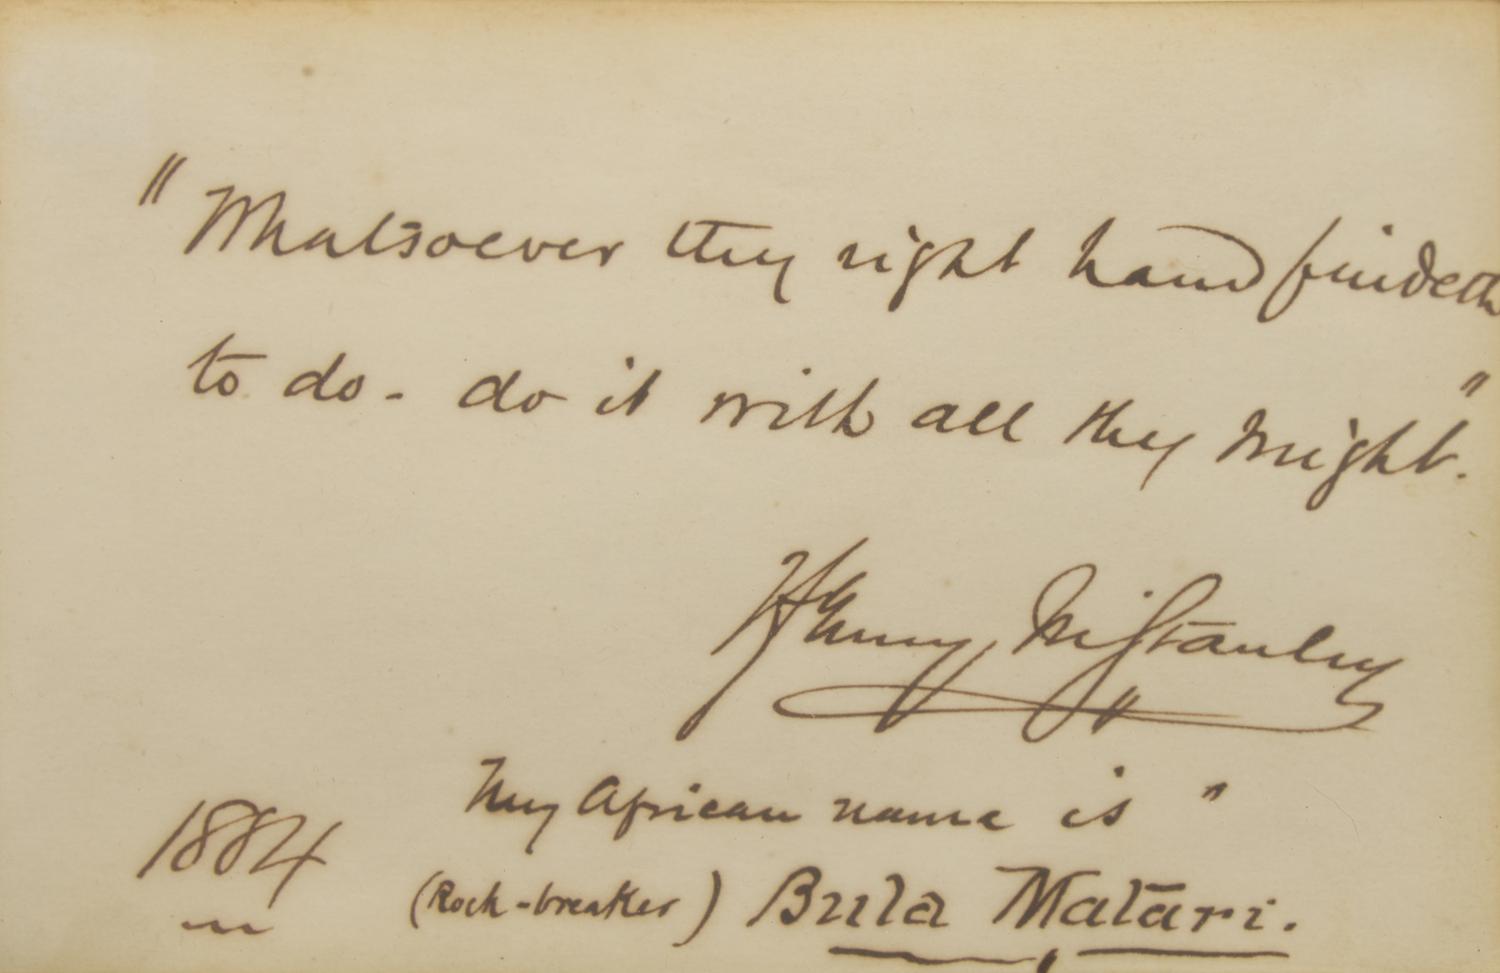 "Whatsoever thy right hand findeth
to do - do it with all thy might."
Henry M. Stanley
My African name is "
1884
(Rock-breaker) Bula Matari.